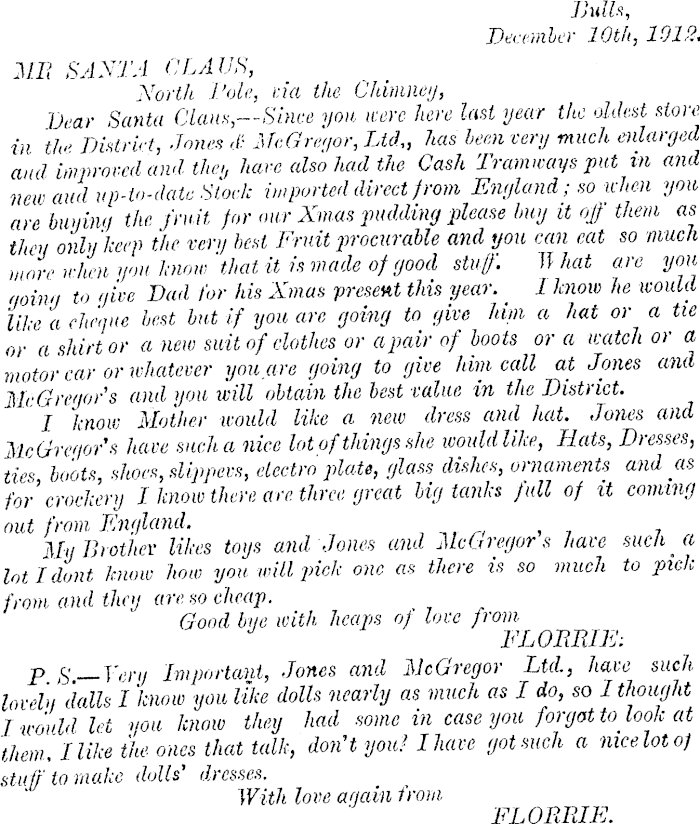 Bulls,
December 10th, 1912.
MR SANTA CLAUS,
North Pole, via the Chimney,
Dear Santa Claus,--Since you were here last year the oldest store
in the District, Jones & McGregor, Ltd,, has been very much enlarged
and improved and they have also had the Cash Tramways put in and
new and up-to-date Stock imported direct from England; so when you
are buying the fruit for our Xmas pudding please buy it off them as
they only keep the very best Fruit procurable and you can eat so much
more when you know that it is made of good stuff. What are you
going to give Dad for his Xmas present this year. I know he would
like a cheque best but if you are going to give him a hat or a tie
or a shirt or a new suit of clothes or a pair of boots or a watch or a
motor car or whatever you are going to give him call at Jones and
McGregor's and you will obtain the best value in the District.
I know Mother would like a new dress and hat. Jones and
McGregor's have such a nice lot of things she would like, Hats, Dresses,
ties, boots, shoes, slippers, electro plate, glass dishes, ornaments and as
for crockery I know there are three great big tanks full of it coming
out from England.
My Brother likes toys and Jones and McGregor's have such a
lot I dont know how you will pick one as there is so much to pick
from and they are so cheap.
Good bye with heaps of love from
FLORRIE:
P. S.—Very Important, Jones and McGregor Ltd., have such
lovely dalls I know you like dolls nearly as much as I do, so I thought
I would let you know they had some in case you forgot to look at
them. I like the ones that talk, don't you? I have got such a nice lot of
stuff to make dolls' dresses.
With love again from
FLORRIE.